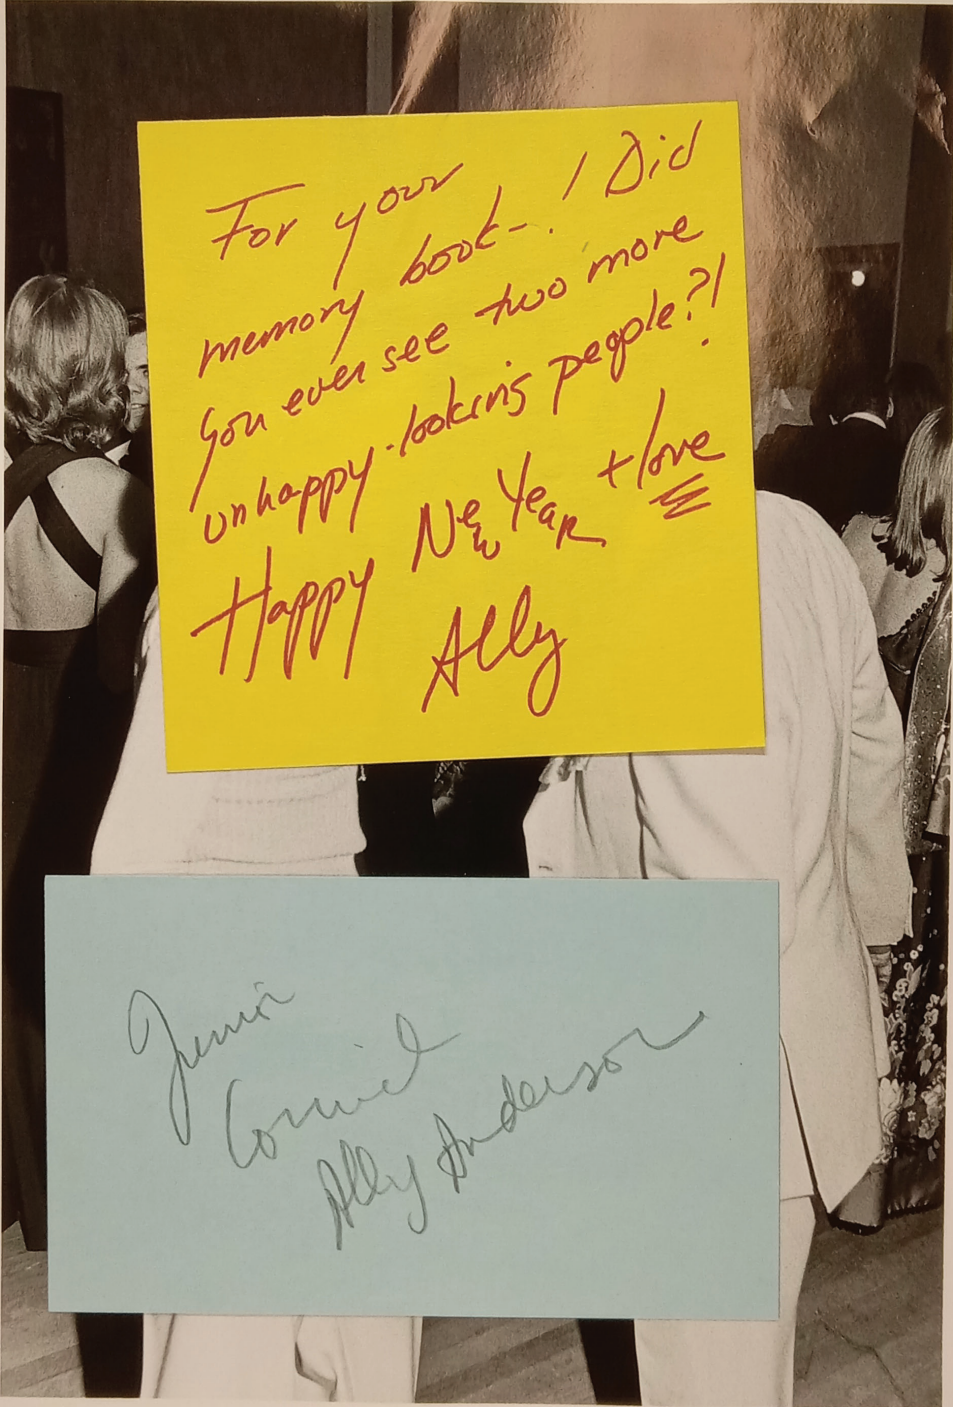 For your
memory book-! Did
you ever see two more
unhappy-looking people?!
Happy New Year + love
Ally
Junior
Ally Anderson